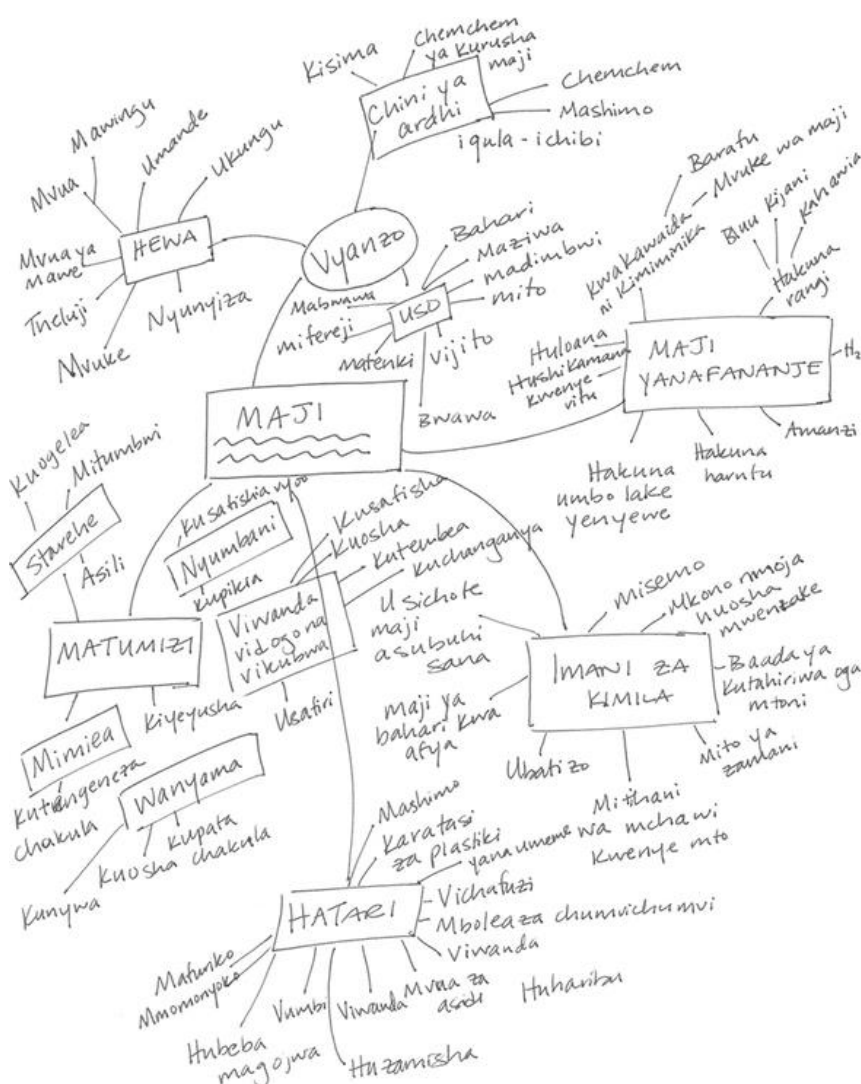 Kisima
Chemchem
ya kurusha
maji
Chini ya
ardhi
Chemchem
Mashimo
iqula-ichibi
Mawingu
Umande
Ukungu
Mvua
Mvua ya
mawe
HEWA
Theluji
Nyunyiza
Mvuke
Vyanzo
Bahari
Maziwa
madimbwi
mito
USO
Mabwawa
mifereji
Matenki
Vijito
Bwawa
Barafu
Mvuke wa maji
Kwa kawaida
ni kimiminika
Bluu
Kijani
Kahawia
Hakuna
rangi
Huloana
Hushikamana
kwenye
vitu
MAJI
YANAFANANJE
H2
Hakuna
umbo lake
yenyewe
Hakuna
harufu
Amanzi
MAJI
Kuogelea
Mitumbwi
Starehe
Asili
MATUMIZI
Kusafishia
Nyumbani
kupikia
Kusafisha
Kuosha
Kutembea
Kuchanganya
Viwanda
vidogo na
vikubwa
Usafiri
Kiyeyusha
Mimiea
Kutengeneza
chakula
Wanyama
Kupata
Kuosha chakula
Kunywa
Usichote
maji
asubuhi
sana
Misemo
Mkono mmoja
huosha
mwenzake
IMANI ZA
KIMILA
Baada ya
kutahiriwa oga
mtoni
maji ya
bahari kwa
afya
Ubatizo
Mito ya
zamani
Mitihani
wa mchawi
kwenye mto
Mashimo
Karatasi
za plastiki
yana umeme
HATARI
Vichafuzi
Mbolea za chumvichumvi
Viwanda
Mafuriko
Mmomonyoko
Hubeba
magojwa
Vumbi
Huzamisha
Viwanda
Mvua za
asidi
Huharibu